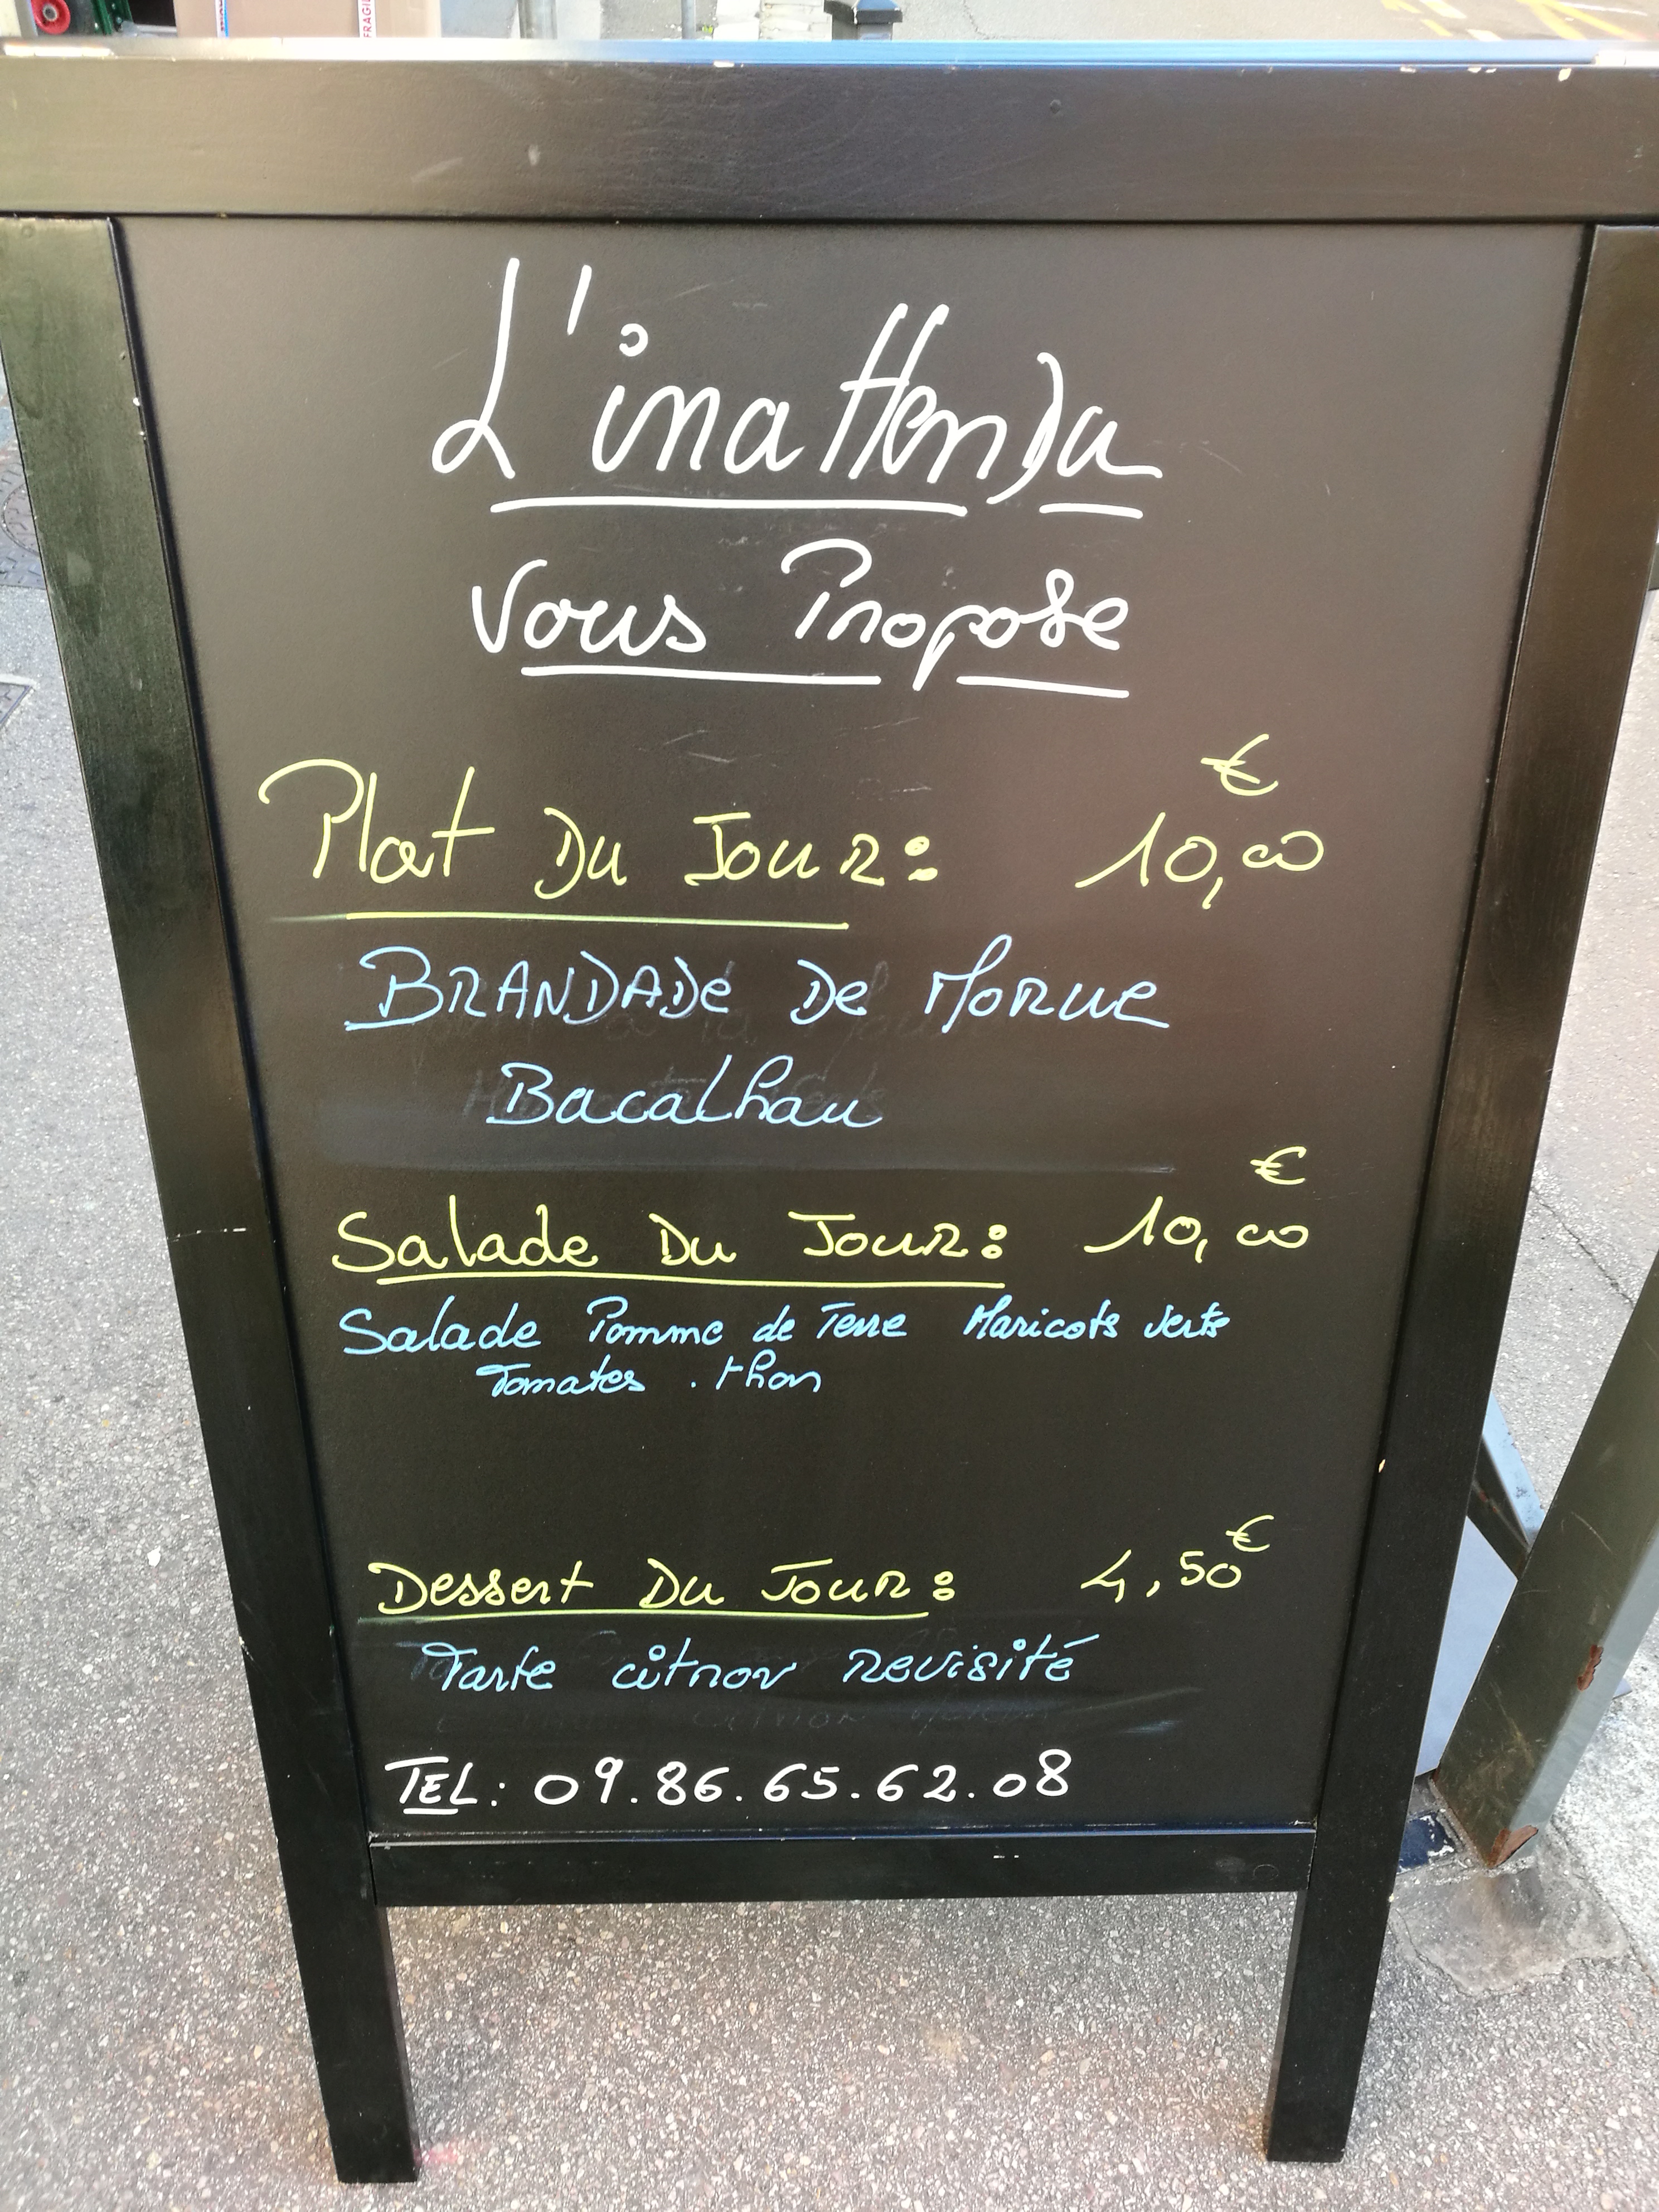 FRAGIL
L'inattendu
Vous Propose
€
Plat Du Jour: 10,00
BRANDADE De Morue
Bacalhau
€
Salade Du Jour: 10,00
Salade Pomme de Terre Haricots verts
Tomates . thon
Dessert Du Jour: 4,50€
Tarte citron revisité
TEL: 09.86.65.62.08